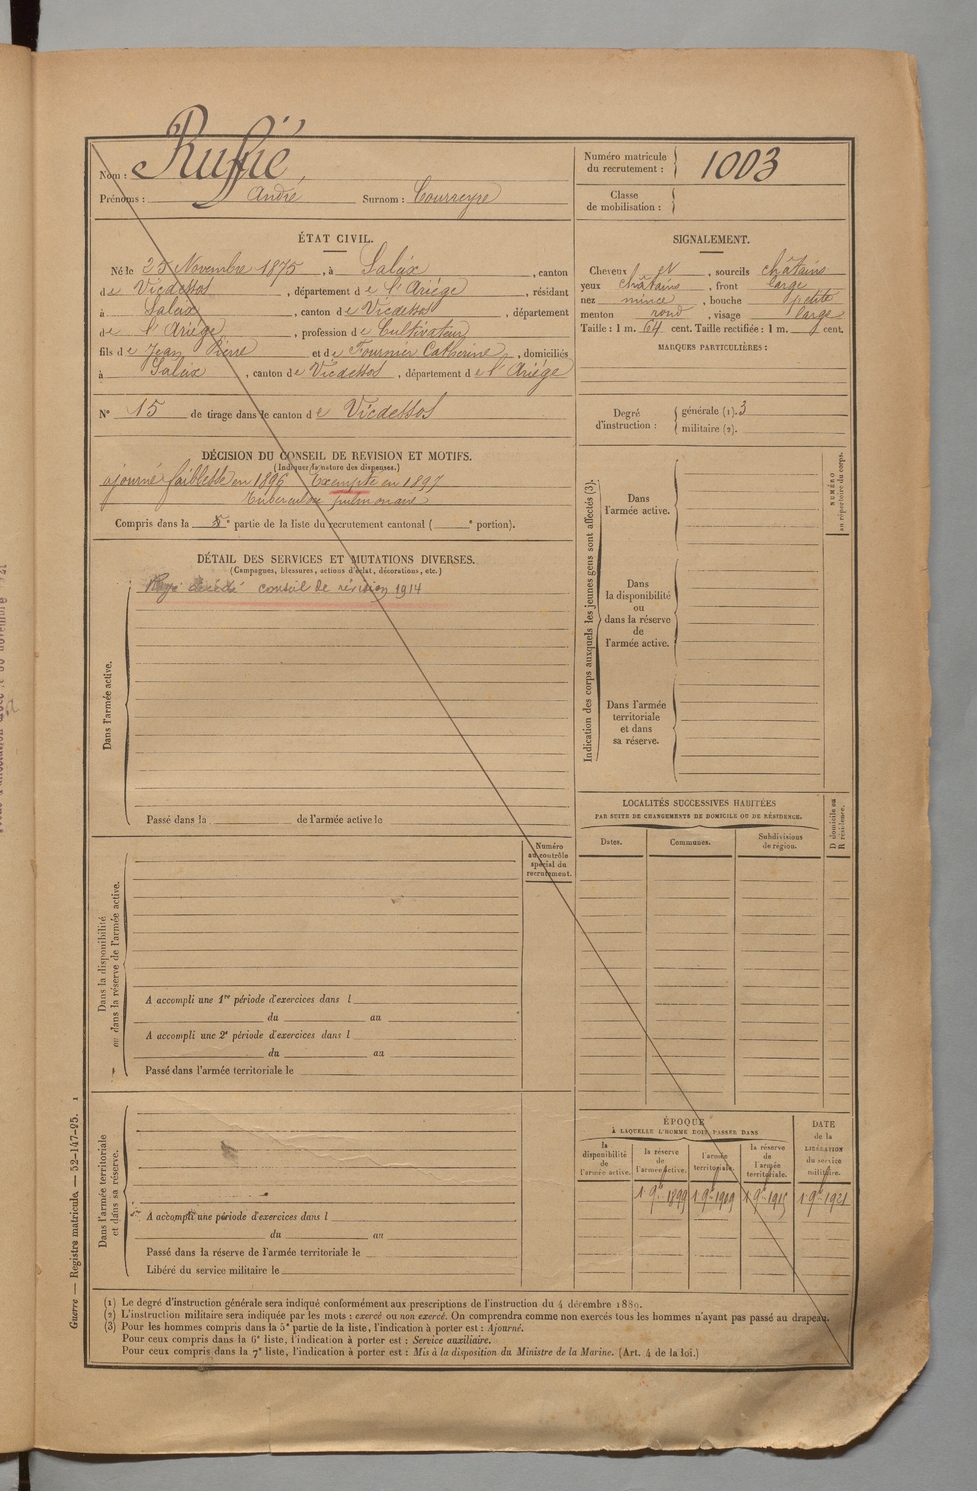 Nom : Ruffié
Prénoms : André Surnom : Courreyre
Numéro matricule du recrutement : 1003
Classe de mobilisation :
ÉTAT CIVIL.
Né le 25 Novembre 1875, à Saleix, canton
de Vicdessos, département de l'Ariége, résidant
à Saleix, canton de Vicdessos, département
de l'Ariége, profession de Cultivateur
fils de Jean Pierre et de Fournier Catherine, domiciliés
à Saleix, canton de Vicdessos, département de l'Ariége
N° 15 de tirage dans le canton de Vicdessos
SIGNALEMENT.
Cheveux et, sourcils châtains
yeux châtains, front large
nez mince, bouche petite
menton rond, visage large
Taille : 1 m. 64 cent. Taille rectifiée : 1 m. cent.
MARQUES PARTICULIÈRES :
Degré d'instruction :
générale (1). 3
militaire (2).
DÉCISION DU CONSEIL DE REVISION ET MOTIFS.
(Indiquer la nature des dispenses.)
ajourné faiblesse en 1896 Exempté en 1897
Tuberculose pulmonaire
Compris dans la 5e partie de la liste du recrutement cantonal ( e portion).
DÉTAIL DES SERVICES ET MUTATIONS DIVERSES.
(Campagnes, blessures, actions d'éclat, décorations, etc.)
conseil de révision 1914
Dans l'armée active.
Passé dans la de l'armée active le
Indication des corps auxquels les jeunes gens sont affectés (3).
Dans l'armée active.
Dans la disponibilité ou dans la réserve de l'armée active.
Dans l'armée territoriale et dans sa réserve.
NUMÉRO au répertoire du corps.
LOCALITÉS SUCCESSIVES HABITÉES
PAR SUITE DE CHANGEMENTS DE DOMICILE OU DE RÉSIDENCE.
Dates. Communes. Subdivisions de région.
D domicile ou R résidence.
Numéro au contrôle spécial du recrutement.
Dans la disponibilité ou dans la réserve de l'armée active.
A accompli une 1re période d'exercices dans l
du au
A accompli une 2e période d'exercices dans l
du au
Passé dans l'armée territoriale le
Dans l'armée territoriale et dans sa réserve.
A accompli une période d'exercices dans l
du au
Passé dans la réserve de l'armée territoriale le
Libéré du service militaire le
ÉPOQUE
À LAQUELLE L'HOMME DOIT PASSER DANS
la disponibilité de l'armée active.
la réserve de l'armée active.
l'armée territoriale.
la réserve de l'armée territoriale.
DATE de la LIBÉRATION du service militaire.
1 9bre 1899 1 9bre 1909 1 9bre 1915 1 9bre 1921
(1) Le degré d'instruction générale sera indiqué conformément aux prescriptions de l'instruction du 4 décembre 1889.
(2) L'instruction militaire sera indiquée par les mots : exercé ou non exercé. On comprendra comme non exercés tous les hommes n'ayant pas passé au drapeau.
(3) Pour les hommes compris dans la 5e partie de la liste, l'indication à porter est : Ajourné.
Pour ceux compris dans la 6e liste, l'indication à porter est : Service auxiliaire.
Pour ceux compris dans la 7e liste, l'indication à porter est : Mis à la disposition du Ministre de la Marine. (Art. 4 de la loi.)
Guerre — Registre matricule. — 52-147-95. 1